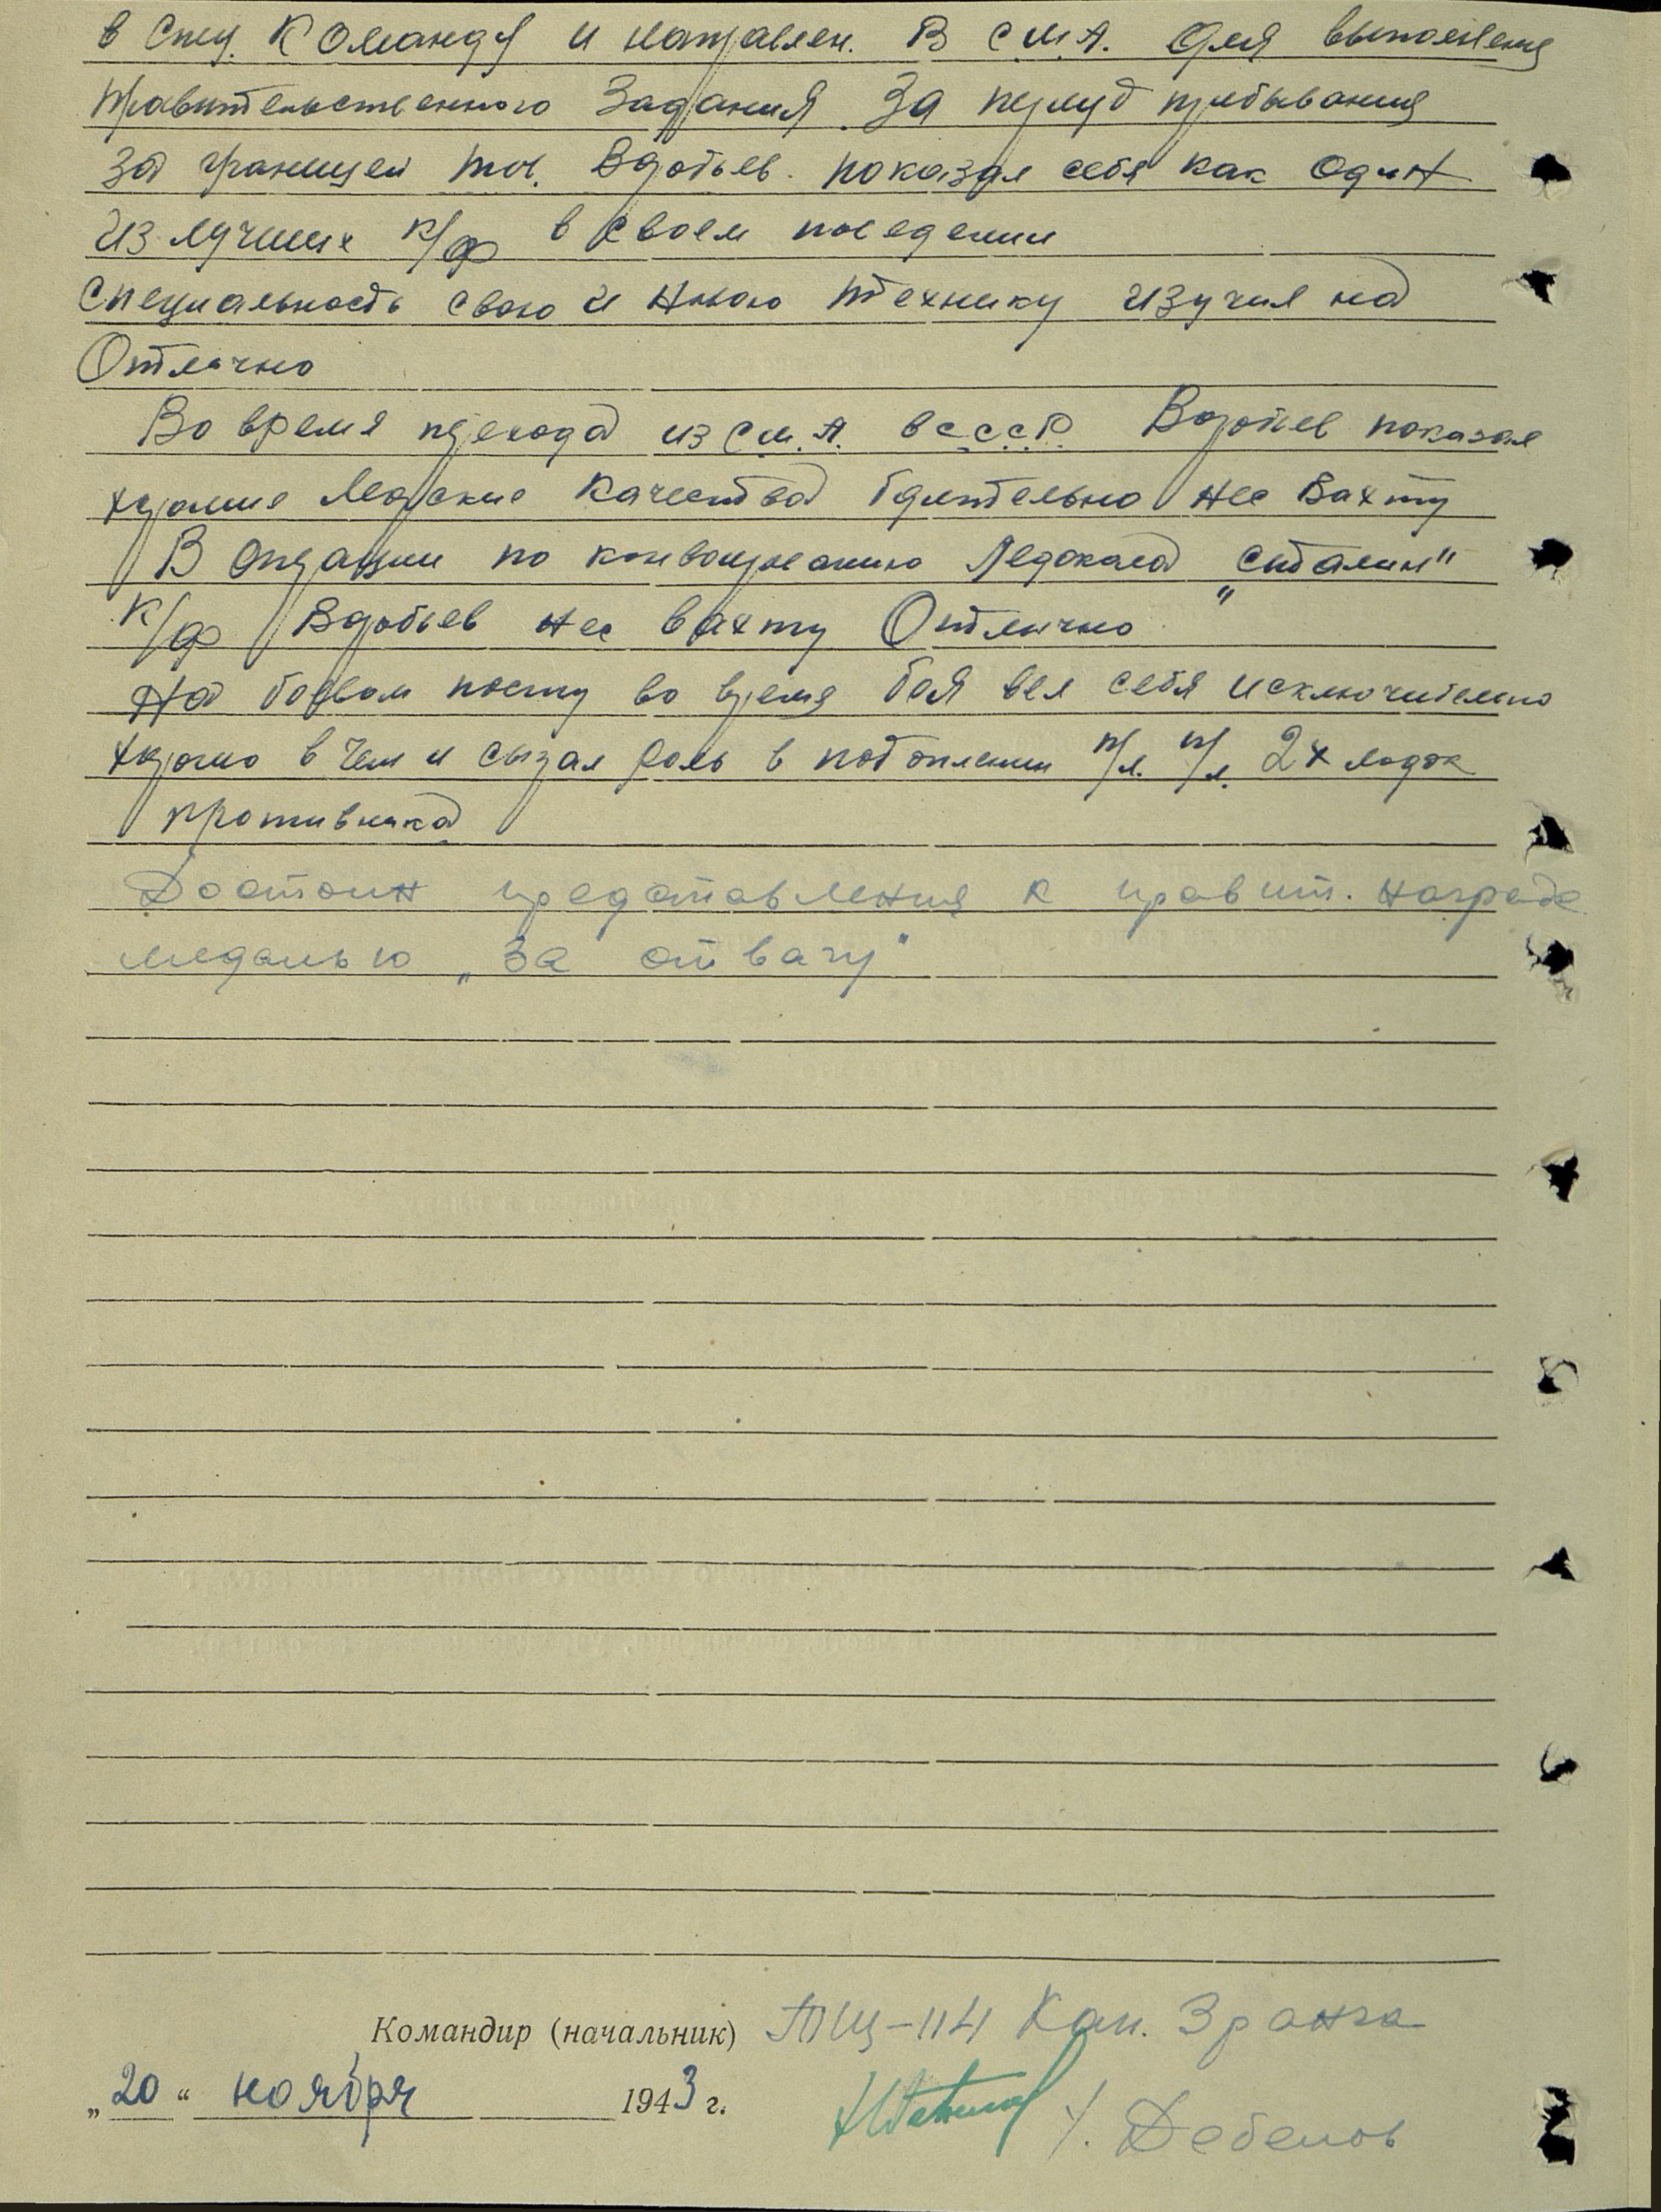 в Спец. Команду и направлен. В С.Ш.А. для выполнения
правительственного Задания. За период пребывания
за границей тов. Воробьев. показал себя как один
из лучших к/ф в своем поведении
специальность свою и нового технику изучил на
Отлично
Во время перехода из С.Ш.А. в С.С.С.Р. Воробьев показал
хорошие Морские качества бдительно нес Вахту
В операции по конвоированию Ледокола „Сталин"
к/ф Воробьев нес вахту Отлично
На боевом посту во время боя вел себя исключительно
хорошо в чем и сыграл роль в потоплении п/л. п/л. 2х лодок
противника
Достоин представления к правит. награде
медалью „За отвагу"
Командир (начальник) ТЩ-114 Кап. 3 ранга
„20" ноября 1943 г.
Дебелов